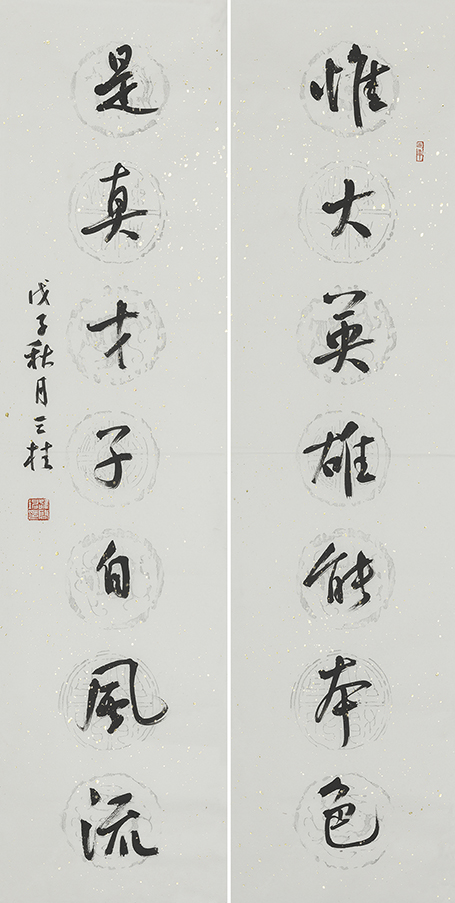 惟大英雄能本色
是真才子自風流
戊子秋月三桂